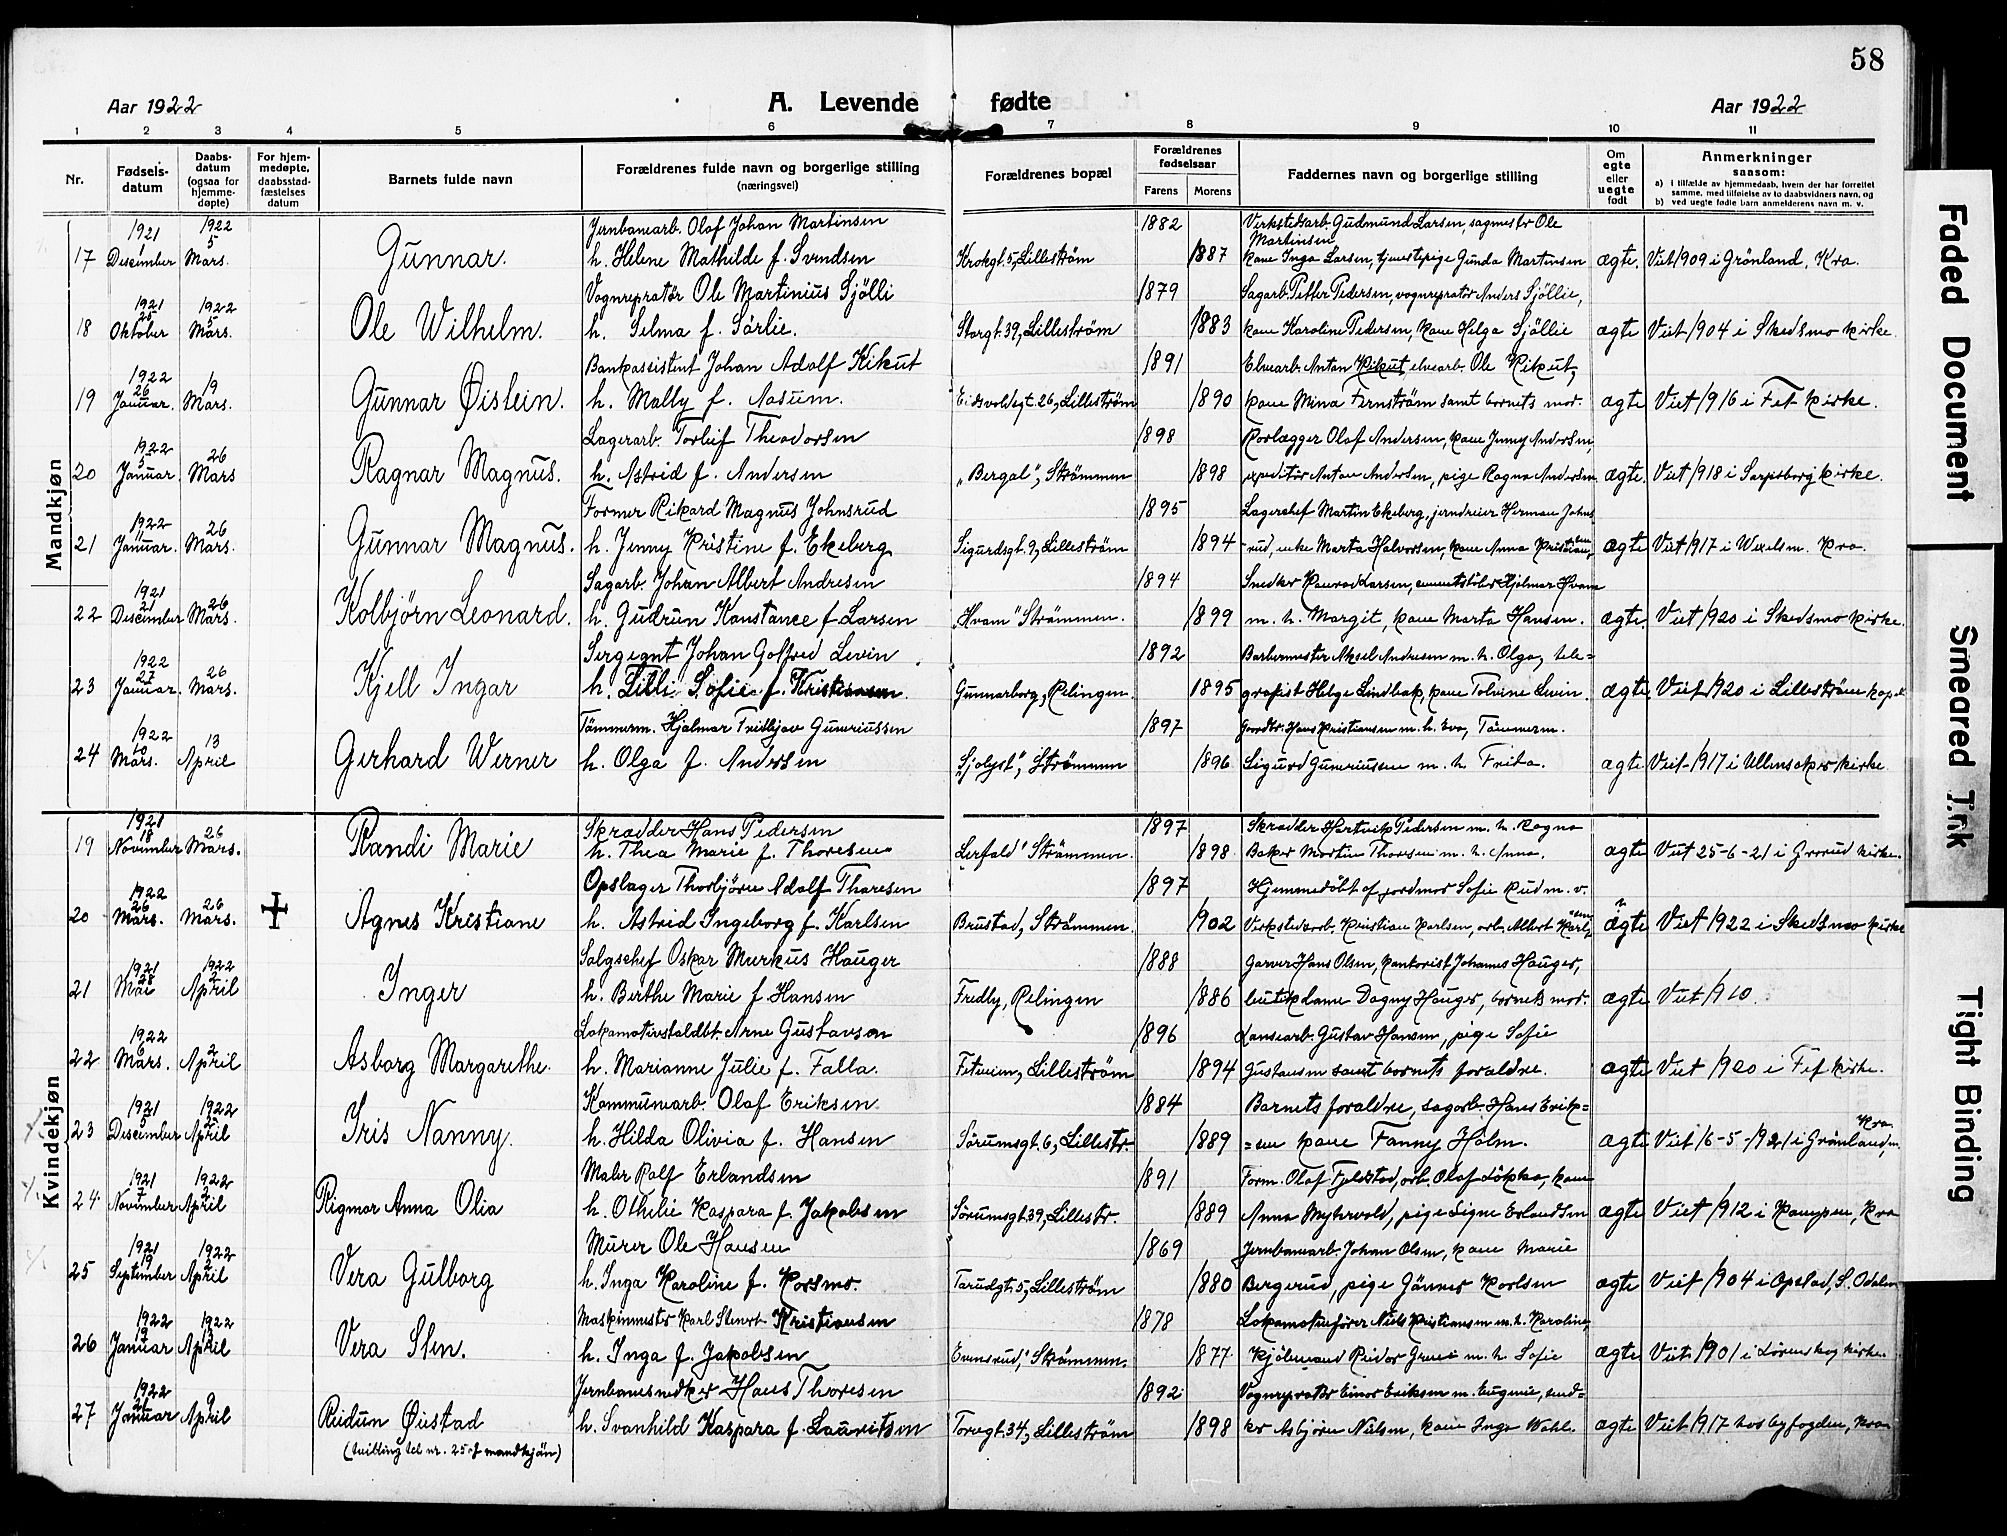 58
Aar 1922
A. Levende fødte
Aar 1922
1 2 3 4 5 6 7 8 9 10 11
Nr.
Fødsels-datum
Daabs-datum (ogsaa for hjemme-døpte)
For hjem-medøpte, daabsstad-fæstelses datum
Barnets fulde navn
Forældrenes fulde navn og borgerlige stilling (næringsvei)
Forældrenes bopæl
Forældrenes fødselsaar
Farens Morens
Faddernes navn og borgerlige stilling
Om egte eller uegte født
Anmerkninger saasom:
a) i tilfælde av hjemmedaab, hvem der har forrettet samme, med tilføielse av to daabsvidners navn, og
b) ved uegte fødte barn anmelderens navn m. v.
Mandkjøn
1921 1922 Jernbanearb. Olaf Johan Martinsen 1882 Verkstedsarb. Gudmund Larsen, sagmester Ole Martinsen
17 December 5 Mars. Gunnar. h. Helene Mathilde f. Svendsen Krokgt. 5, Lilleström 1887 kone Inga Larsen, tjenestepige Gunda Martinsen ægte. Viet 1909 i Grönland, Kra.
1921 1922 Vognrepratör Ole Martinius Sjölli 1879 Sagarb. Petter Pedersen, vognrepratör Anders Sjöllie,
18 25 Oktober 5 Mars. Ole Wilhelm. h. Selma f. Sörlie. Storgt. 39, Lilleström 1883 kone Karoline Pedersen, kone Helga Sjöllie ægte Viet 1904 i Skedsmo kirke.
1922 Bankassistent Johan Adolf Kikut 1891 Elvearb. Anton Kikut, elvearb. Ole Kikut,
19 26 Januar. 19 Mars. Gunnar Øistein. h. Mally f. Aasum. Eidsvoldsgt. 26, Lilleström 1890 kone Mina Fernström samt barnets mor. ægte Viet 1916 i Fet kirke.
1922 Lagerarb. Torleif Theodorsen 1898 Rorlægger Olaf Andersen, kone Jenny Andersen,
20 5 Januar. 26 Mars Ragnar Magnus. h. Astrid f. Andersen "Bergal", Strömmen 1898 expeditör Anton Andersen, pige Ragna Andersen ægte. Viet 1918 i Sarpsborg kirke.
1922 Former Rikard Magnus Johnsrud 1895 Lagerchef Martin Ekeberg, jerndreier Herman Johns
21 11 Januar. 26 Mars. Gunnar Magnus. h. Jenny Kristine f. Ekeberg Sigurdsgt. 9, Lilleström 1894 -rud, enke Marta Halvorsen, kone Anna Kristiansen, ægte Viet 1917 i Wexelsm. Kra.
1921 Sagarb. Johan Albert Andresen 1894 Snedker Konrad Larsen, Hjalmar Hvam
22 21 December 26 Mars. Kolbjörn Leonard. h. Gudrun Konstance f Larsen "Hvam" Strömmen. 1899 m. h. Margit, kone Marta Hansen. ægte. Viet 1920 i Skedsmo kirke.
1922 Sergeant Johan Golfred Levin 1892 Barbermester Aksel Andresen m. h. Olga, tele=
23 27 Januar. 26 Mars. Kjell Ingar h. Lilli Sofie f. Kristiansen. Gunnarborg, Relingen. 1895 grafist Helge Lindbak, kone Tolvine Levin. ægte Viet 1920 i Lilleström kapel
1922 Tömmerm. Hjalmar Fridtjov Guneriussen 1897 Hans Kristiansen m. h. Eva, Tömmerm.
24 10 Mars. 13 April Gerhard Werner h. Olga f. Andersen "Sjolyst", Strömmen 1896 Sigurd Gunerius sen m. h. Frida. ægte Viet 1917 i Ullensaker kirke.
Kvindekjøn
1921 Skrædder Hans Pedersen 1897 Skrædder Hartvik Pedersen m. h. Ragna
19 18 November 26 Mars. Randi Marie h. Thea Marie f. Thoresen Lerfald" Strömmen. 1898. Baker Martin Thoresen m. h. Anna. ægte Viet 25-6-21 i Grorud kirke.
1922 Opslager Thorbjörn Adolf Thoresen 1897 Hjemmedöbt af jordmor Sofie Rud m. v.
20 26 Mars. 26 Mars. Agnes Kristiane h. Astrid Ingeborg f. Karlsen Brustad, Strömmen. 1902 Verkstedsarb. Kristian Karlsen, arb. Albert Karlsen ægte Viet 1922 i Skedsmo kirke
1921 1922 Salgschef Oskar Murkus Hauger 1888 Garver Hans Olsen, kontorist Johannes Hauger,
21 28 Mai 2 April Inger h. Berthe Marie f. Hansen Fredly, Relingen 1886 butikdame Dagny Hauger, barnets mor. ægte Viet 1910.
1922 Lokomotivstaldbt. Arne Gustavson 1896 Gustav Hansen, pige Sofie
22 6 Mars. 2 April Asborg Margarethe. h. Marianne Julie f. Falla. Fetveien, Lilleström 1894 Gustavsen samt barnets foraldre. ægte Viet 1920 i Fet kirke.
1921 1922 Kommunearb. Olaf Eriksen 1884 Barnets foraldre, sagarb. Hans Erik=
23 5 December 2 April Iris Nanny. h. Hilda Olivia f. Hansen Sörumsgt. 6, Lillestr. 1889 =sen kone Fanny Holm. ægte Viet 16-5-1921 i Grönland, Kra
1921 1922 Maler Ralf Erlandsen 1891 Form. Olaf Fjeldstad, arb. Olaf Lökka, kone
24. 7 November 2 April Rigmor Anna Olia h. Othelie Kaspara f. Jakobsen Sörumsgt. 39, Lillestr. 1889 Anna Myhrvold, pige Signe Erlandsen ægte Viet 1912 i Kampen, Kra
1921 1922 Murer Ole Hansen 1869 Jernbanearb. Johan Olsen, kone Marie
25 19 September 2 April Vera Gulborg h. Inga Karoline f. Korsmo. Tærudgt. 5, Lilleström 1880 Bergerud, pige Karlsen ægte Viet 1904 i Opstad, S. Odalen
1922 1922 Maskinmester Karl Stenert Kristiansen 1878 Lokomotivförer Niels Kristiansen m. h. Karoline,
26 19 Januar April Vera Sten. h. Inga f. Jakobsen Evensrud," Strömmen. 1877. Kjöbmand Reidar m. h. Sofie ægte Viet 1901 i Lörenskog kirke.
1922 Jernbanesnedker Hans Thoresen 1892 Vognrepratör Einar Eriksen m. Eugenie, sned=
27 21 Januar 9 April Reidun Øistad h. Svanhild Kaspara f. Lauritsen Torvgt. 34, Lilleström 1898 ker Asbjörn Nilsen, kone Inga Wahl. ægte Viet 1917 hos byfogden, Kra
(tvilling til nr. 25 af mandkjön)
Faded Document
Smeared Ink
Tight Binding